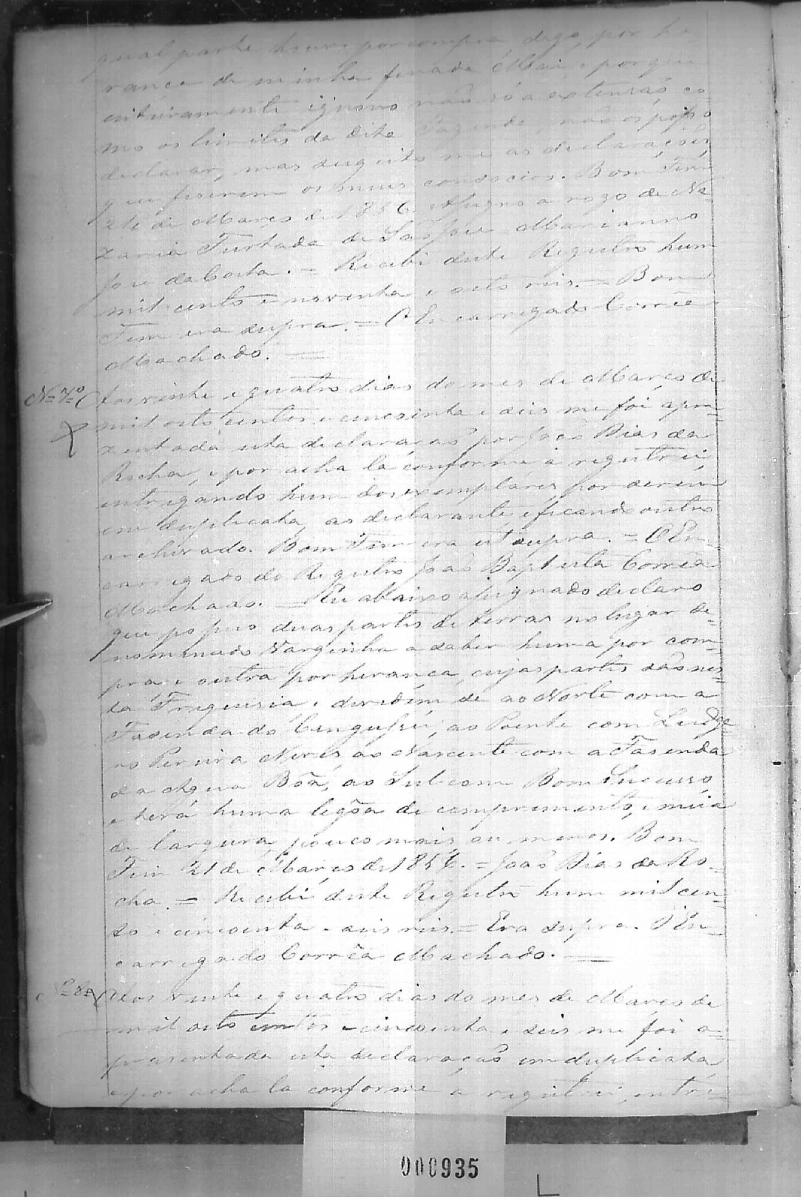 qual parte houve por compra digo, por he-
rança de minha finada Mai e por que
inteiramente ignoro não só a extensão co-
mo os limites da dita Fazenda, não os posso
declarar, mas sugeito me as declarações
que fizerem os meus consocios. Bom Fim
21 de Março de 1856. Assigno a rogo de Na-
zaria Furtada de São José Marianno
José da Costa. = Recebi deste Registro hum
mil cento e noventa e oito reis. = Bom
Fim era supra. = O Encarregado Corrêa
Machado. =
Nº 7º Aos vinte e quatro dias do mes de Março de
mil oito centos e cincoenta e seis me foi apre-
zentada esta declaração por João Dias da
Rocha, e por acha la conforme a registrei,
entregando hum dos exemplares por serem
em duplicata, ao declarante e ficando outro
archivado. Bom Fim era ut supra. = O En-
carregado do Registro João Baptista Corrêa
Machado. = Eu abaixo assignado declaro
que possuo duas partes de terras no lugar de-
nominado Varginha a saber huma por com-
pra e outra por herança, cujas partes são nes-
ta Freguesia e dividem de ao Norte com a
Fasenda do, ao Poente com Ludge
ro Pereira Neves ao Nascente com a Fasenda
da Agua Bôa, ao Sul com Bom Sucesso
e terá huma legôa de comprimento, e meia
de largura, pouco mais ou menos. Bom
Fim 21 de Março de 1856. = João Dias da Ro-
cha. = Recebi deste Registro hum mil cen-
to e cincoenta e seis reis. = Era supra. O En-
carregado Corrêa Machado. =
Nº 8º Aos vinte e quatro dias do mes de Março de
mil oito centos e cincoenta e seis me foi a-
presentada esta declaração em duplicata
e por acha la conforme a registrei, entre-
000935